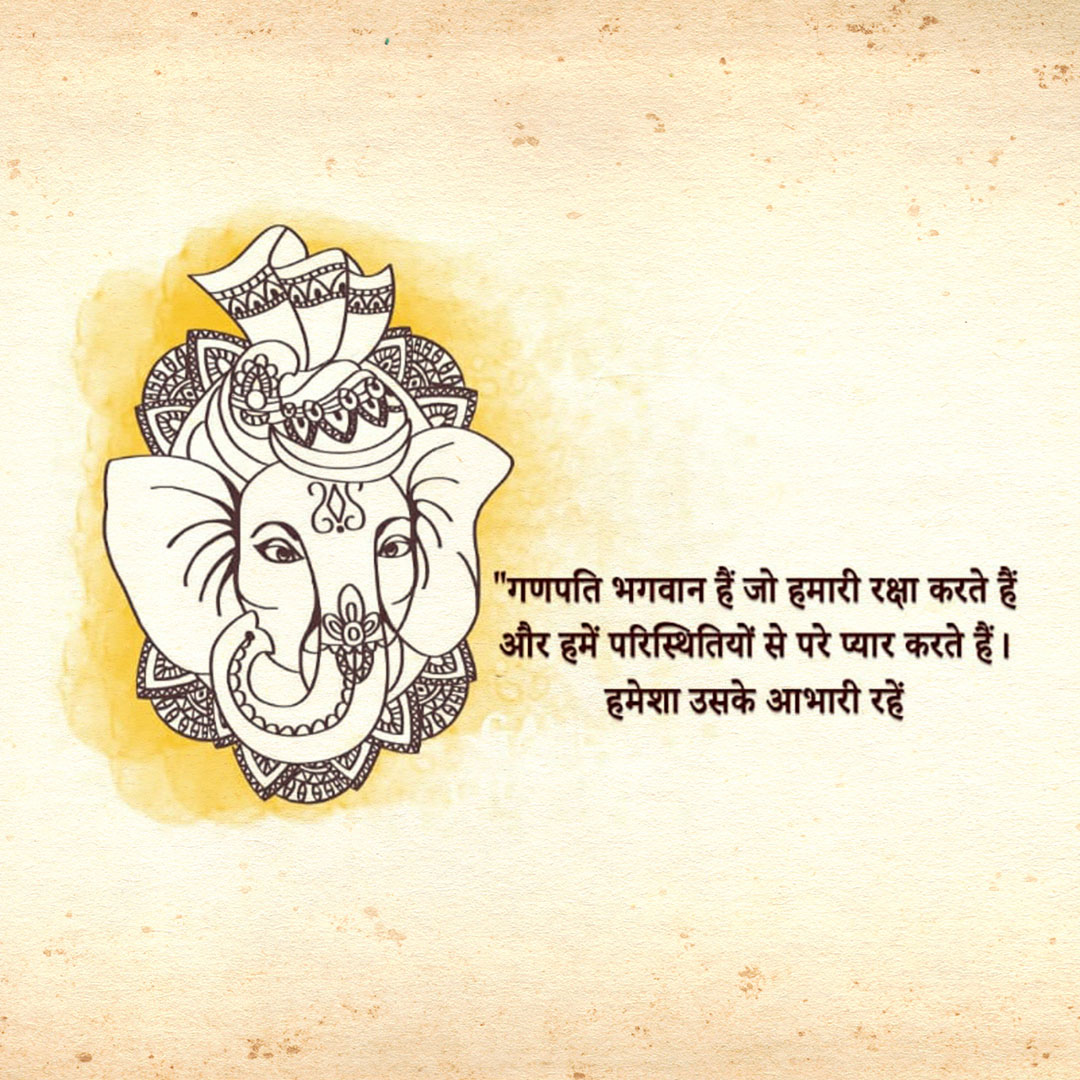 "गणपति भगवान हैं जो हमारी रक्षा करते हैं
और हमें परिस्थितियों से परे प्यार करते हैं।
हमेशा उसके आभारी रहें